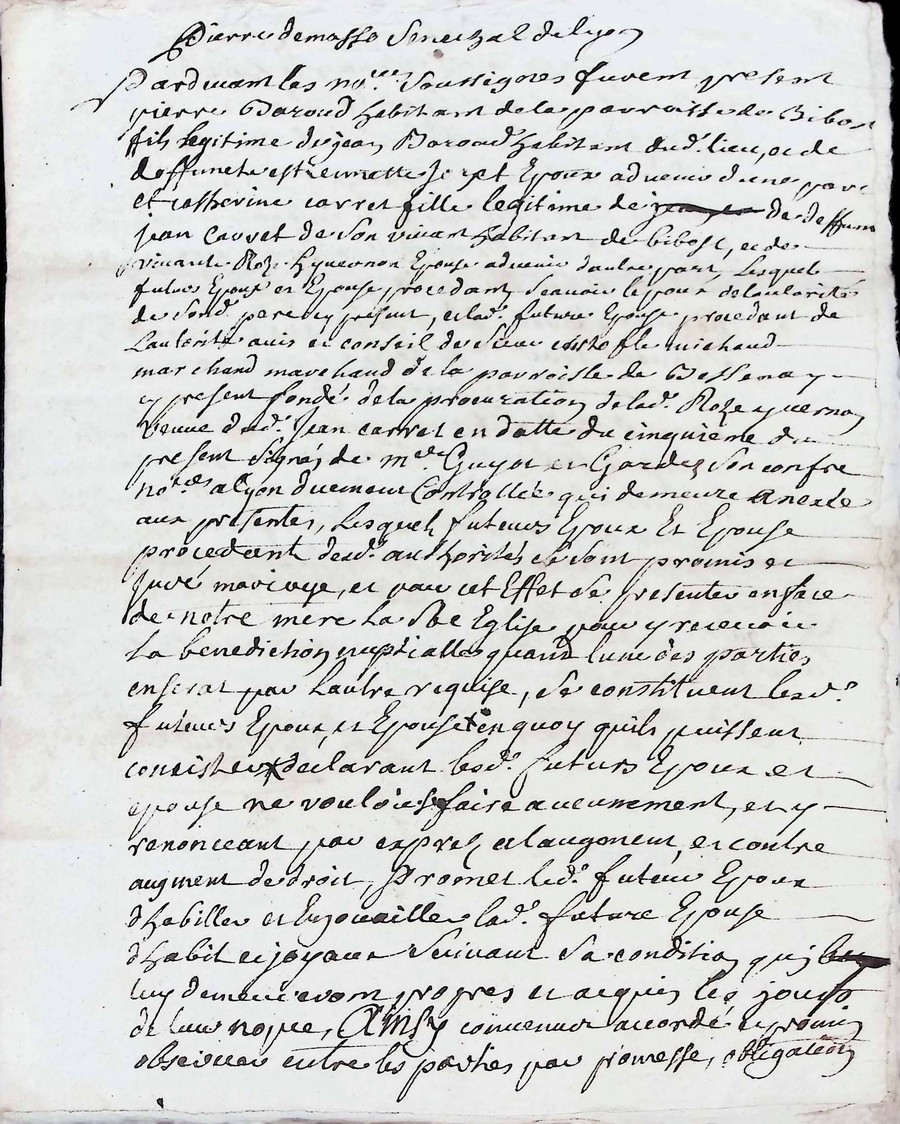 Pierre demasso Senechal de lyon
Pardevant les no.res Soussignes furent present
pierre Baroud habitant de la parroisse de Bibost
fils legitime de jean Baroud habitant dud. lieu, et de
deffuncte Epoux advenir d'une part
et catherine carret fille legitime de de deffunt
jean Carret de Son vivant habitant de bibost, et de
vivante Roze yvernon Epouse advenir d'autre part, Lesquels
futurs Epoux et Epouse, procedant Scavoir le poux de lautorité
de Sond. pere cy present, et lad. future Epouse procedant de
Lautorité avis et conseil de Sieur cristofle michaud
marchand marchand de la parroisse de Bessenay
cy present fondé de la procuration de lad. Roze yvernon
veuve dud. Jean carret en datte du cinquieme du
present Signés de me Guyot et Gardes Son confre
no.res a Lyon duement Controllée qui demeure anexée
aux presentes, Lesquels futeurs Epoux Et Epouse
procedent desd. authorités Se sont promis et
juré mariage, et pour cet Effet Se presenter en face
de notre mere La Ste Eglise pour y recevoir
la benediction nuptialle quand lune des parties
en serat par Lautre requise, Se constituent lesd.
futeurs Epoux, et Epouse x en quoy quils puissent
consister x declarant lesd. futurs Epoux et
epouse ne vouloir faire aucunement, et y
renonceant par exprés et laugment, et contre
augment de droit, Promet led. futeur Epoux
d'habiller et Enjouailler lad. future Epouse
d'habit et joyaux Suivant Sa condition qui
luy demeureront propres et acquis les jours
de leur nopce, Ainsy convenus accordé et promis
observer entre les parties par promesse, obligation